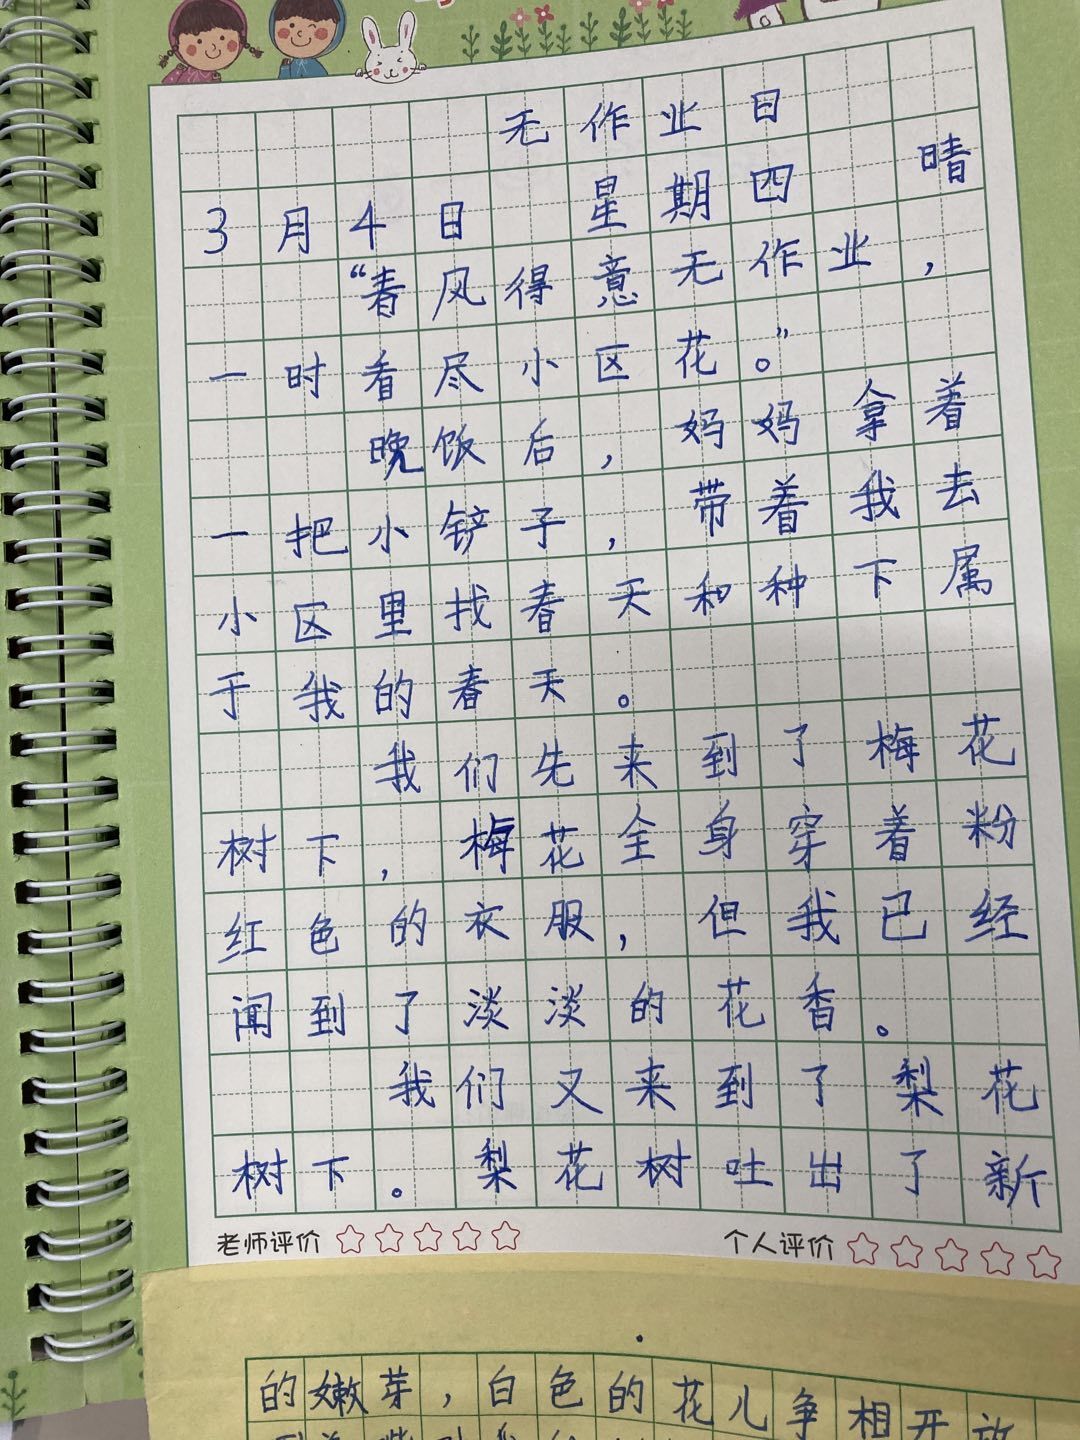 无作业日
3月4日 星期四 晴
“春风得意无作业，
一时看尽小区花。”
晚饭后，妈妈拿着
一把小铲子，带着我去
小区里找春天和种下属
于我的春天。
我们先来到了梅花
树下，梅花全身穿着粉
红色的衣服，但我已经
闻到了淡淡的花香。
我们又来到了梨花
树下。梨花树吐出了新
老师评价 个人评价
的嫩芽，白色的花儿争相开放